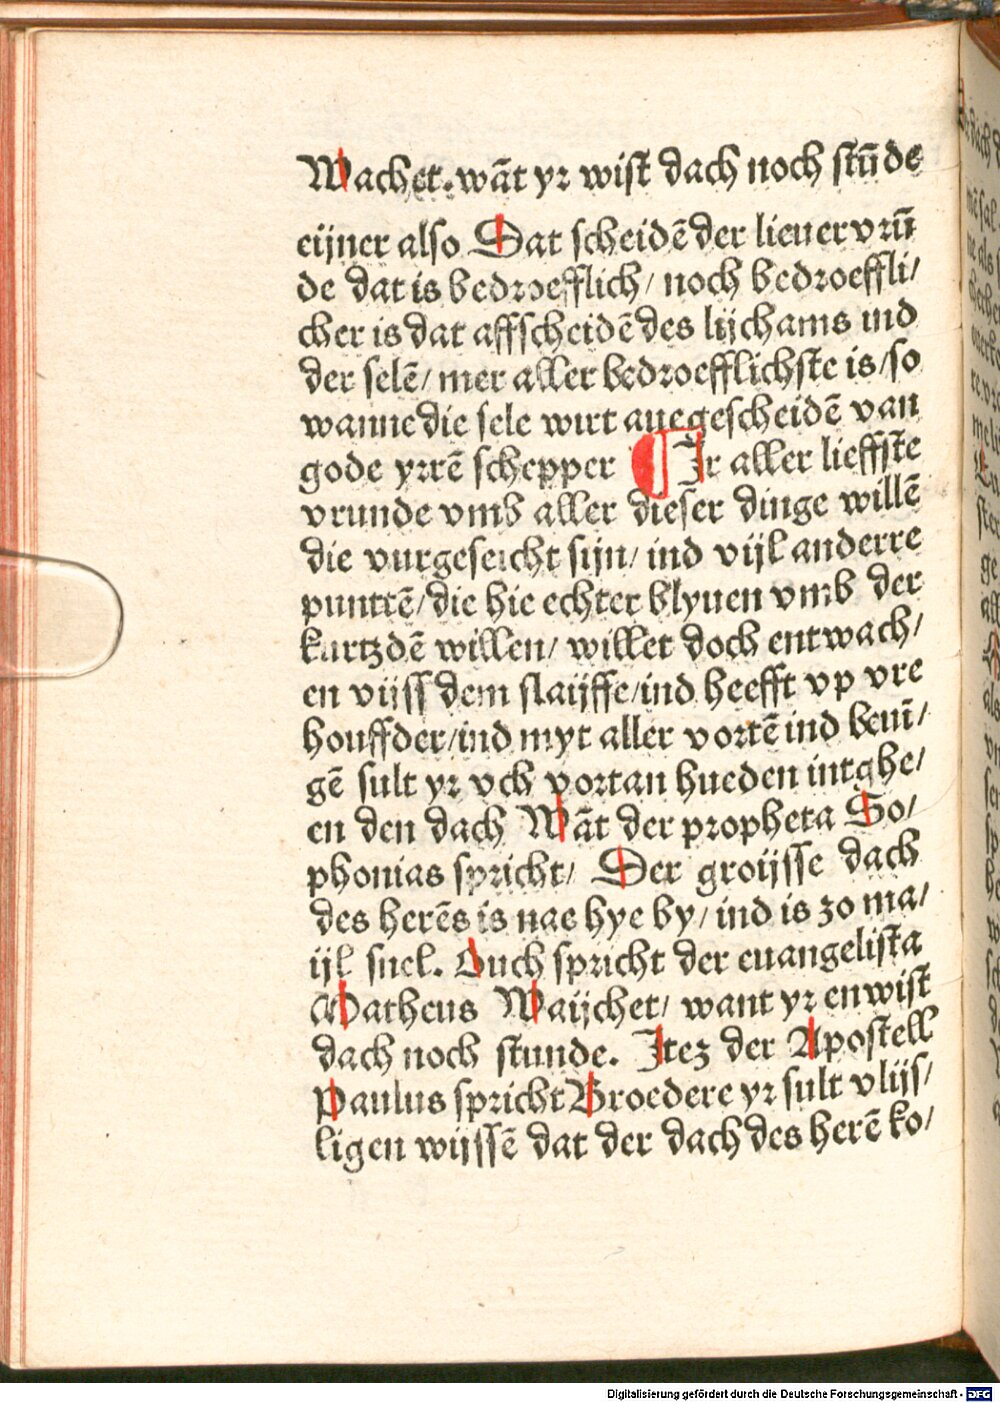 Wachet. wāt yr wist dach noch stūde
eijner also Dat scheidē der lieuer vrū
de dat is bedroefflich/ noch bedroeffli/
cher is dat affscheidē des lijchams ind
der selē/ mer aller bedroefflichste is/ so
wanne die sele wirt auegescheidē van
gode yrrē schepper ¶ Ir aller lieffste
vrunde vmb aller dieser dinge willē
die vurgeseicht sijn/ ind vijl anderre
puntrē/ die hie echter blyuen vmb der
kurtzdē willen/ willet doch entwach/
en vijss dem slaijffe/ ind heefft vp vre
houffder/ ind myt aller vortē ind beuī/
gē sult yr vch vortan hueden intghe/
en den dach Wāt der propheta So/
phonias spricht/ Der groijsse dach
des herēs is nae hye by/ ind is zo ma/
ijl snel. Ouch spricht der euangelista
Matheus Waijchet/ want yr enwist
dach noch stunde. Itez der Apostell
Paulus spricht Broedere yr sult vlijs/
ligen wijssē dat der dach des herē ko/
Digitalisierung gefördert durch die Deutsche Forschungsgemeinschaft - DFG